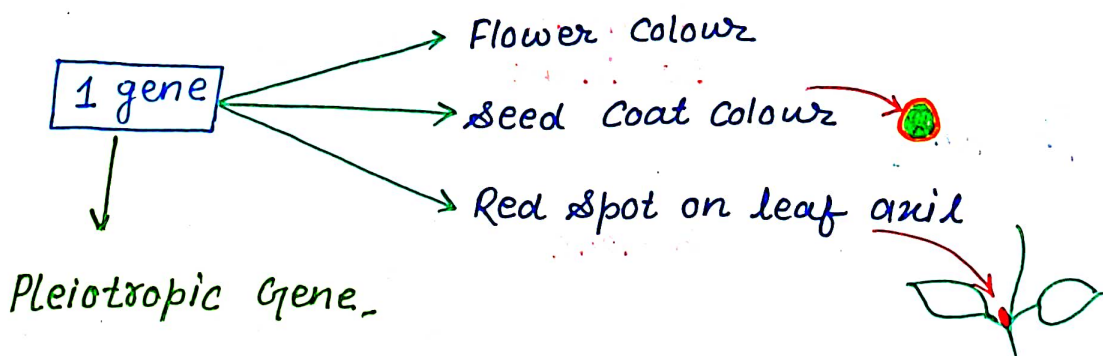 Flower Colour
1 gene
Seed Coat Colour
Red Spot on leaf axil
Pleiotropic Gene.